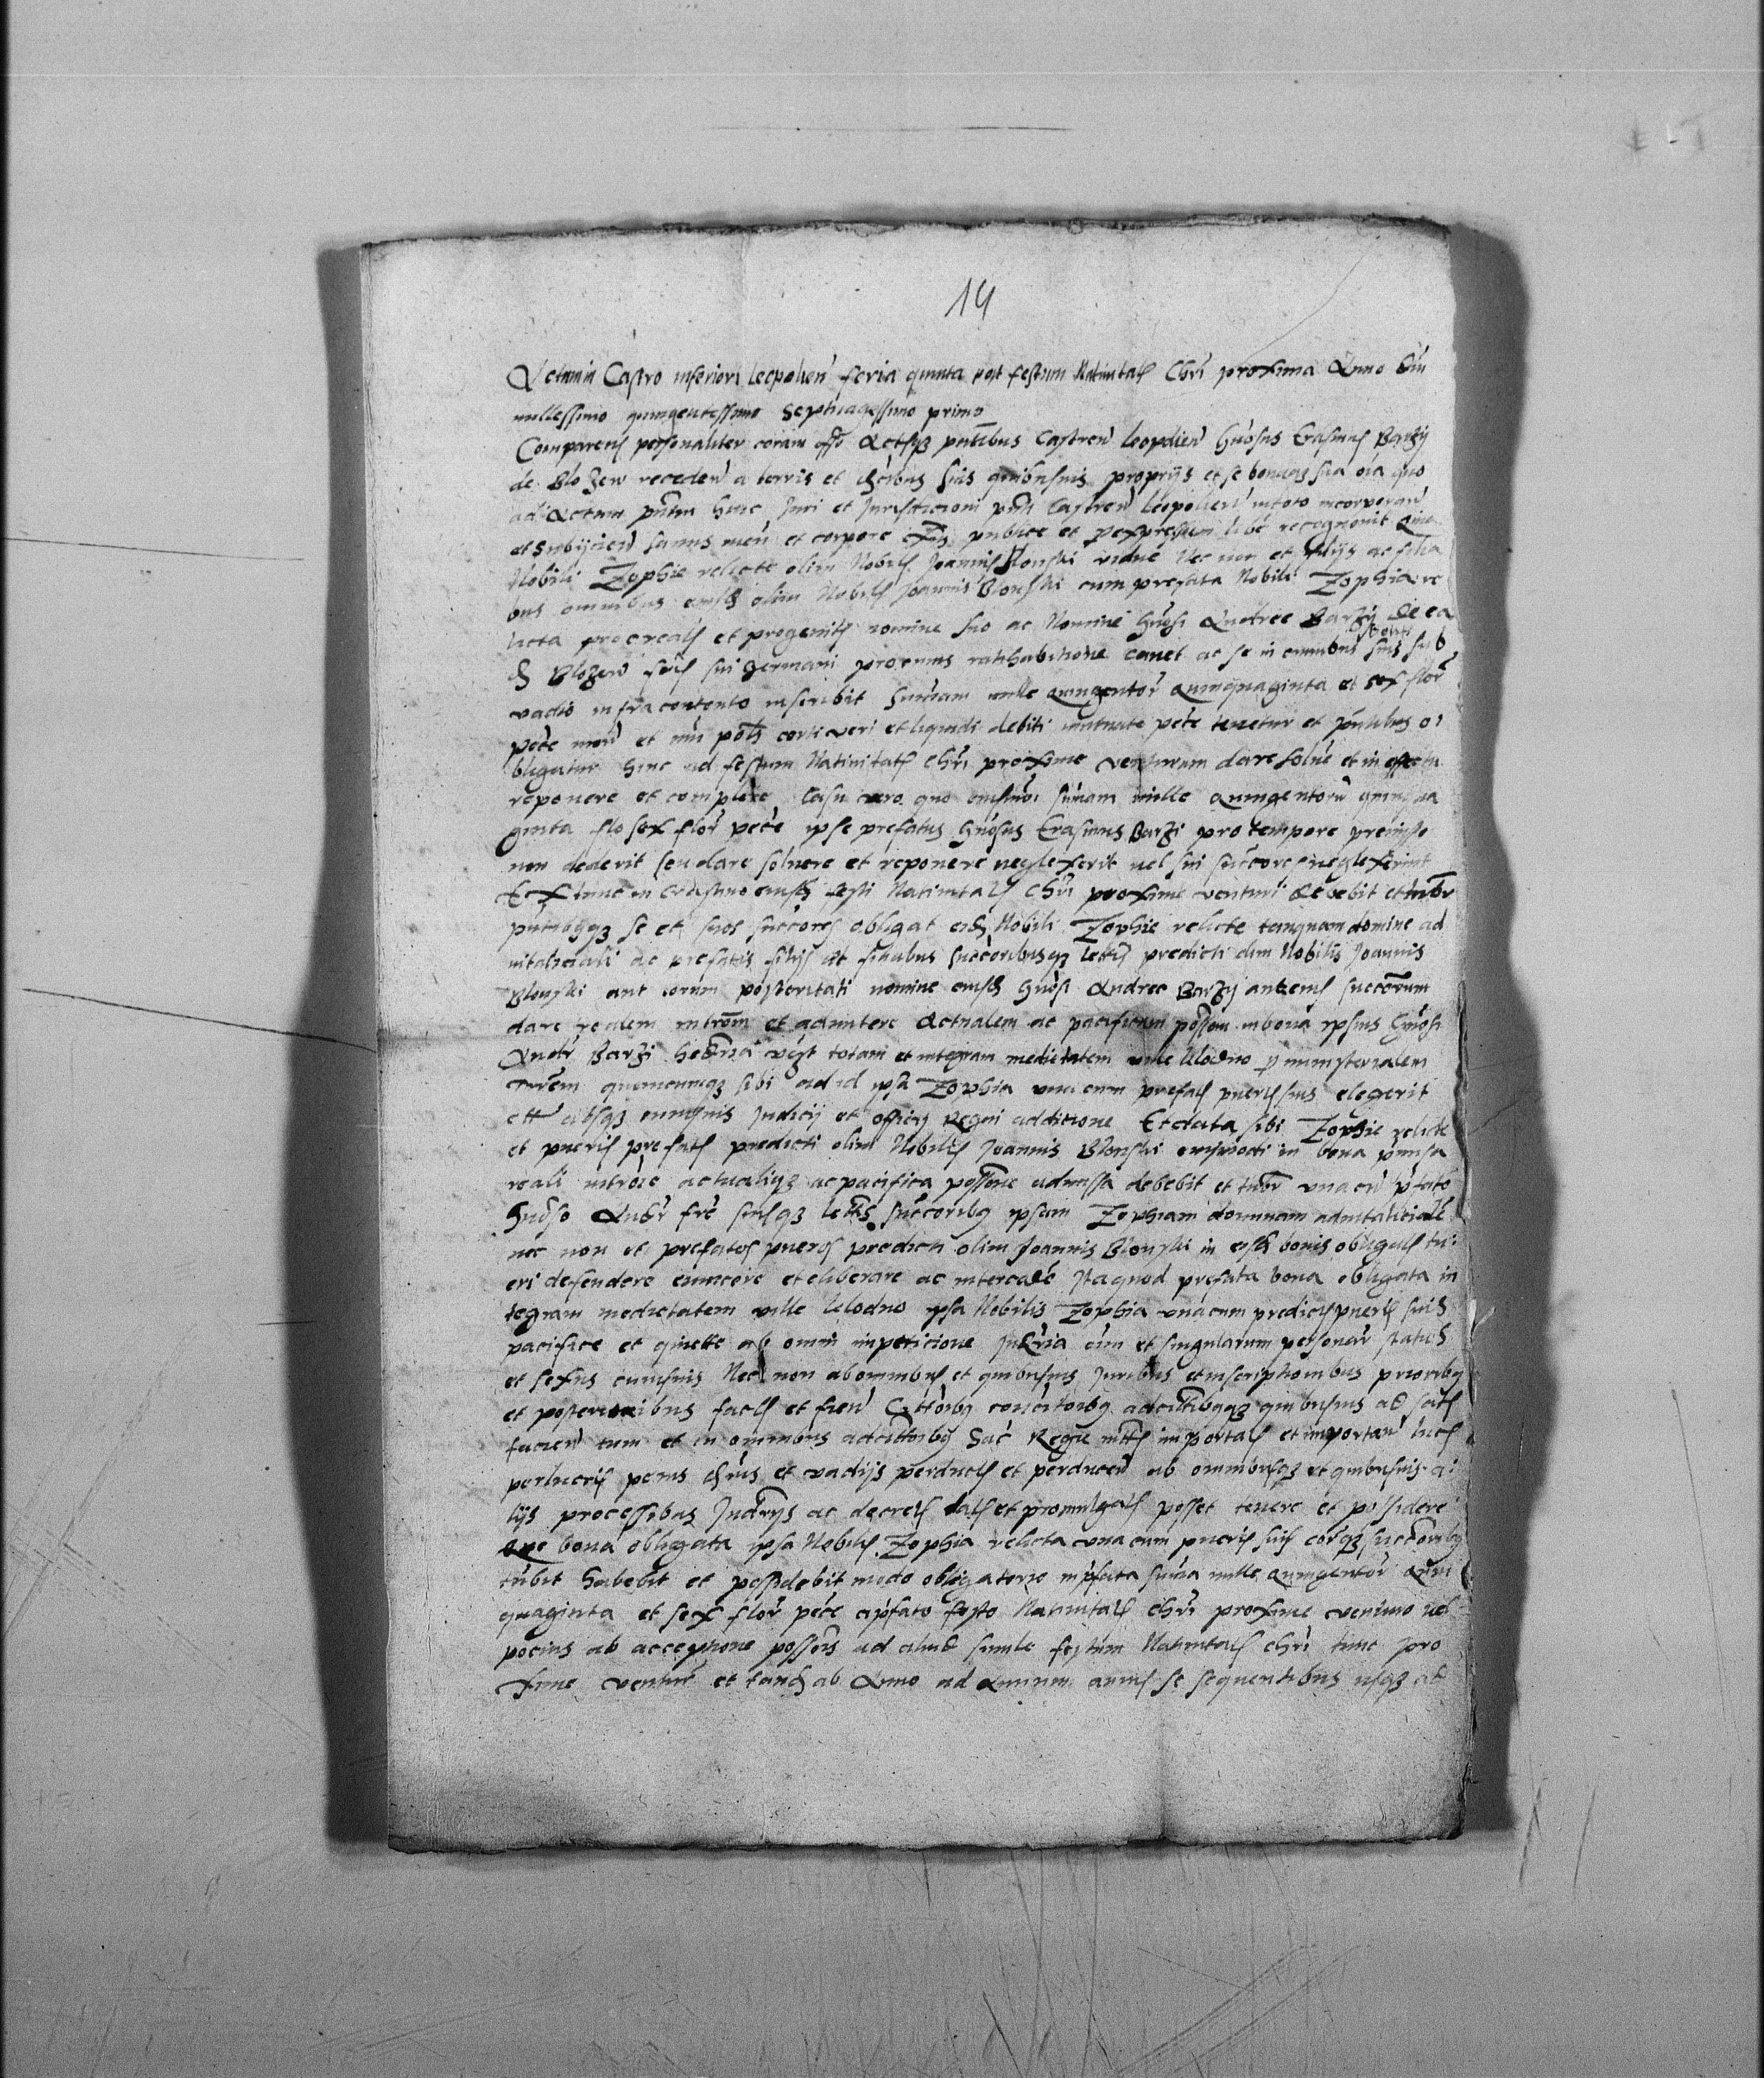 14
Actum in Castro inferiori Leopolien feria quinta post festum Nativitatis Chri proxima Anno Dni
millessimo quingentessimo Septuagessimo primo
Comparens personaliter coram offo Actisq pntibus Castren Leopolien Gnosus Erasmus Barzij
de Blozew receden a terris et suis quibusvis proprijs et se bonaq sua oia quo
ad Actum pntem huic Juri et Jurisdicioni pnti Castren Leopolien intoto incorporan
et subijcien sanus men et corpore publice et p expressum libe recognovit Quia
Nobili Zophie relicte olim Nobilis Joannis Blonski vidue Nec non et filijs ac filia
bus omnibus eiusd olim Nobilis Joannis Blonski cum prefata Nobili Zophia re
licta procreatis et progenitis nomine suo ac Nomine Gnosi Andree Barzij de ea
d Blozew fris sui germani pro cuius ratihabitione cavet ac se in omnibus bonis suis sub
vadio infra contento inscribit Sumam mille quingentor quinquaginta et sex flor
pecc mon et nui polis certi veri et liquidi debiti mutuate pecc tenetur et pntibus o
bligatur hinc ad festum Nativitatis Chri proxime venturum dare solve et in effectu
reponere et complere Casu vero quo eiusmoi sumam mille quingentoru quinqua
ginta sex flor pecc ipse prefatus Gnosus Erasmus Barzi pro tempore premisso
non dederit seu dare solvere et reponere neglexerit vel sui succores neglexerint
Extunc in crastino eiusd festi Nativitatis Chri proxime venturi debebit et tnbr
pntibqq se et suos succores obligat eid Nobili Zophie relicte tanquam domine ad
vitaliciali ac prefatis filijs et filiabus succoribusq predicti olim Nobilis Joannis
Blonski aut eorum posteritati nomine eiusd Gnosi Andree Barzij succorum
dare realem introm et admittere Actualem ac pacificam possom in bona ipsius Gnosi
Andr Barzi hedria vigt totam et integram medietatem ville Wlodno p ministerialem
terrem quemcumq sibi ad id ipsa Zophia una cum prefatis pueris suis elegerit
ett absq cuiusvis Judicij et officij Regni additione Et data sibi Zophie relicte
et pueris prefatis predicti olim Nobilis Joannis Blonski eiusmodi in bona pmissa
reali introie actualiq ac pacifica possone admissa debebit et tnbr una cu pfato
Gnoso Andr fre suisq succoribq ipsam Zophiam dominam advitalicialē
nec non et prefatos pueros predicti olim Joannis Blonski in eisd bonis obligatis tu
eri defendere evincere et eliberare ac intercedē Ita quod prefata bona obligata in
tegram medietatem ville Wlodno ipsa Nobilis Zophia una cum predictis pueris suis
pacifice et quiete ab omni impeticione Juridica oim et singularum personar status
et sexus cuiusvis Nec non ab omnibus et quibusvis Juribus et inscriptionibus prioribq
et posterioribus factis et fien quibusvis ad satis
facien tum et in omnibus Sac Regie mttis importatis et importan lucris
perlucris penis et vadijs perductis et perducen ab omnibusq et quibusvis a
lijs processibus Judicijs ac decretis latis et promulgatis posset tenere et possidere
Que bona obligata ipsa Nobilis Zophia relicta una cum pueris suis eorq succoribq
tnbit habebit et possidebit modo obligatorio in pfata suma mille quingentor quin
quaginta et sex flor pecc a pfato festo Nativitatis Chri proxime venturo vel
pocius ab acceptione possois ad aliud simile festum Nativitatis Chri tunc pro
xime ventur et tand ab Anno ad Annum annis se sequentibus usq ad